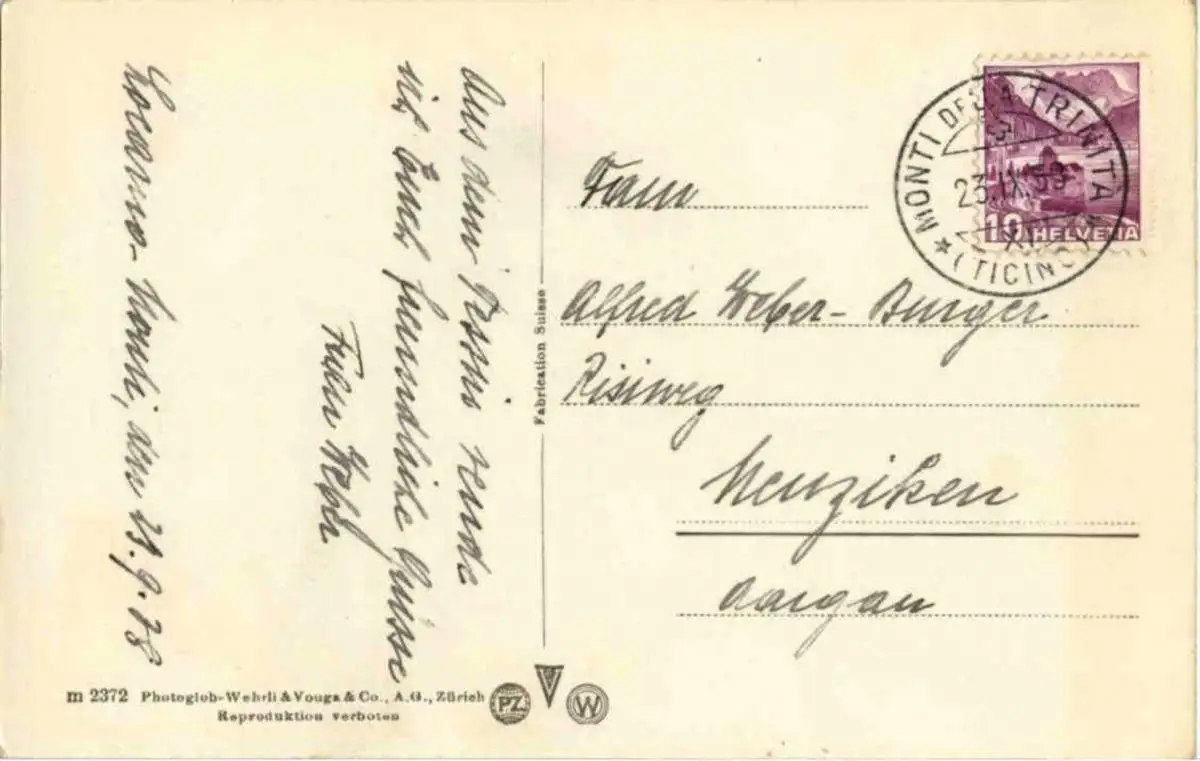 Locarno-Monti, den 23.9.38
Aus dem Tessin sende
ich Euch freundliche Grüsse
Fam
Alfred Weber-Burger
Risiweg
Menziken
Aargau
MONTI DELLA TRINITA
23.IX.38
(TICINO)
10 HELVETIA
Fabrication Suisse
m 2372 Photoglob-Wehrli & Vouga & Co., A.G., Zürich
Reproduktion verboten
PZ
W